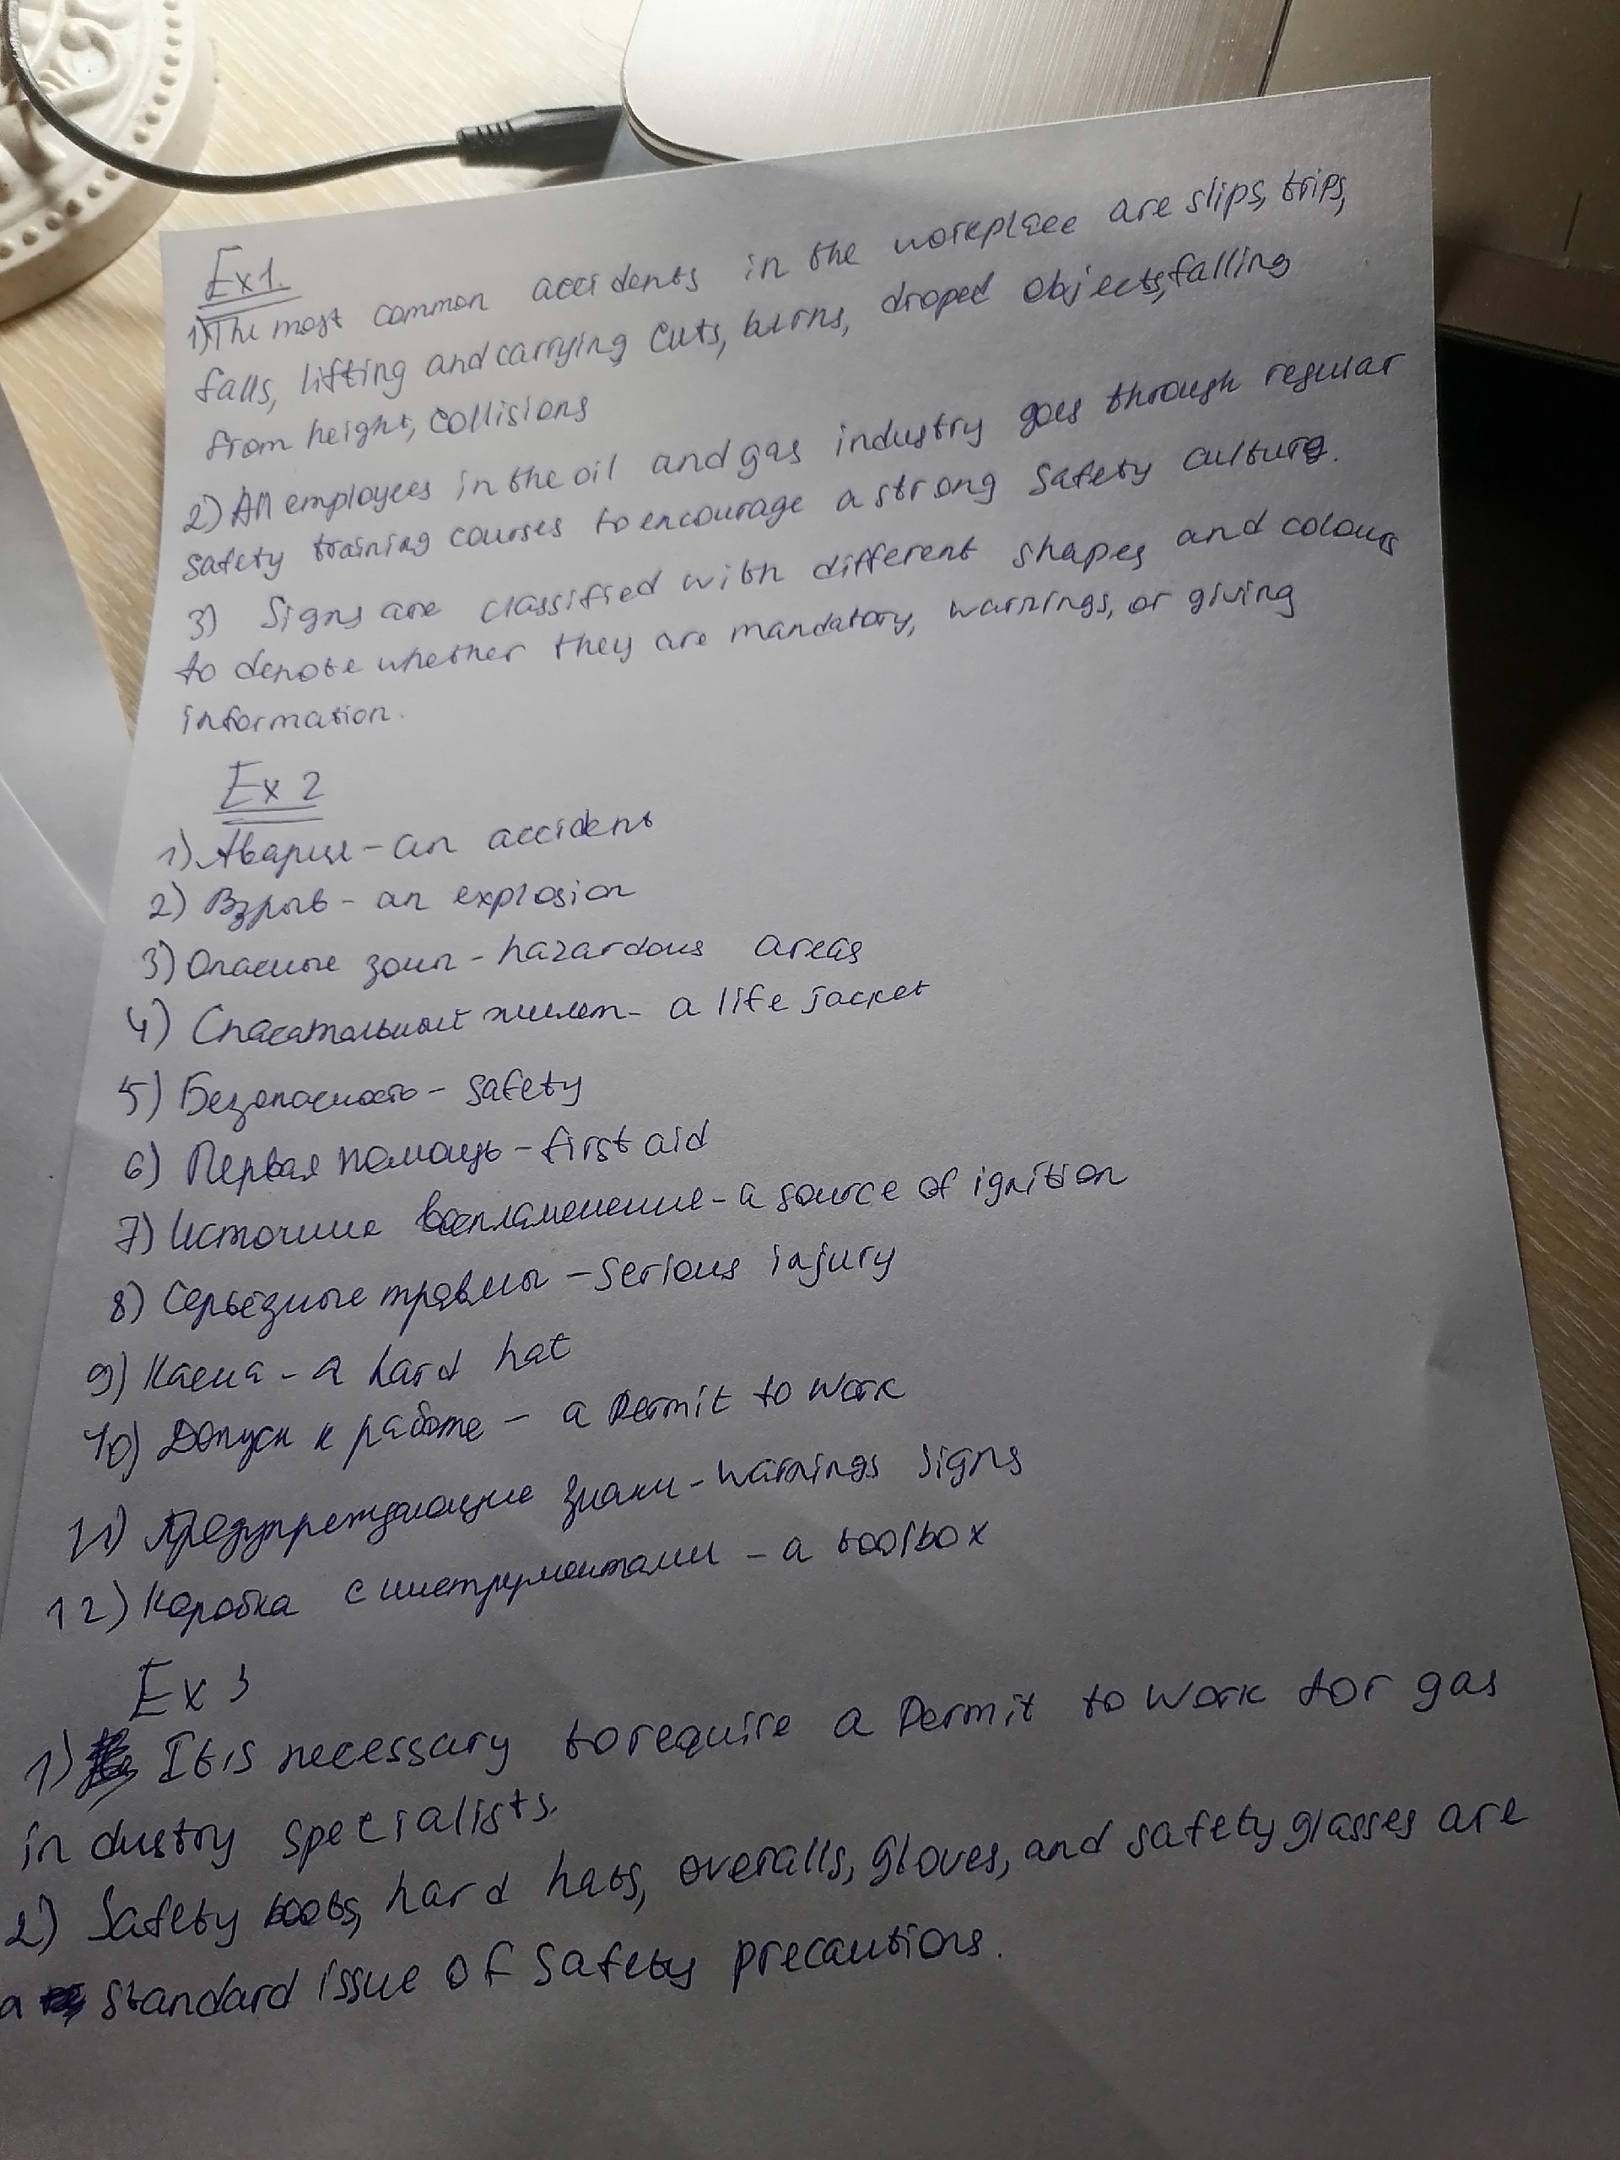 Ex1.
1) The most common accidents in the workplace are slips, trips,
falls, lifting and carrying cuts, burns, droped objects, falling
from height, collisions
2) All employees in the oil and gas industry goes through regular
safety training courses to encourage a strong safety culture.
3) Signs are classified with different shapes and colours
to denote whether they are mandatory, warnings, or giving
information.
Ex 2
1) Авария - an accident
2) Взрыв - an explosion
3) Опасные зоны - hazardous areas
4) Спасательный жилет - a life jacket
5) Безопасность - safety
6) Первая помощь - first aid
7) Источник воспламенение - a source of ignition
8) Серьёзные травмы - Serious injury
9) Каска - a hard hat
10) Допуск к работе - a Permit to Work
11) Предупреждающие знаки - warnings signs
12) Коробка с инструментами - a toolbox
Ex 3
1) It is necessary to require a Permit to Work for gas
industry specialists.
2) Safety boots, hard hats, overalls, gloves, and safety glasses are
a standard issue of safety precautions.